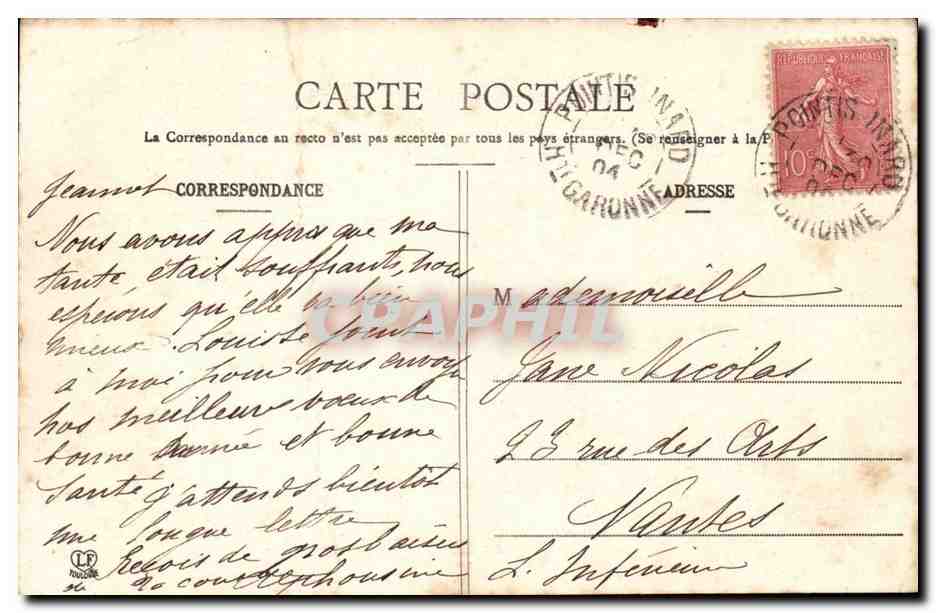 CARTE POSTALE
La Correspondance au recto n'est pas acceptée par tous les pays étrangers. (Se renseigner à la P
CORRESPONDANCE
Jeannot
Nous avons appris que ma
tante, était souffrante, nous
espérons qu'elle bien
mieux. Louise joint
à moi pour vous envoyer
nos meilleurs voeux de
bonne année et bonne
Santé j'attends bientôt
une longue lettre
Reçois de gros baisers
ta
LF
TOULOUSE
ADRESSE
Mademoiselle
Jane Nicolas
23 rue des Arts
Nantes
L. Inférieure
REPUBLIQUE FRANÇAISE
10c
POINTIS-INARD
DEC
04
Hte GARONNE
POINTIS-INARD
DEC
Hte GARONNE
CRAPHIL